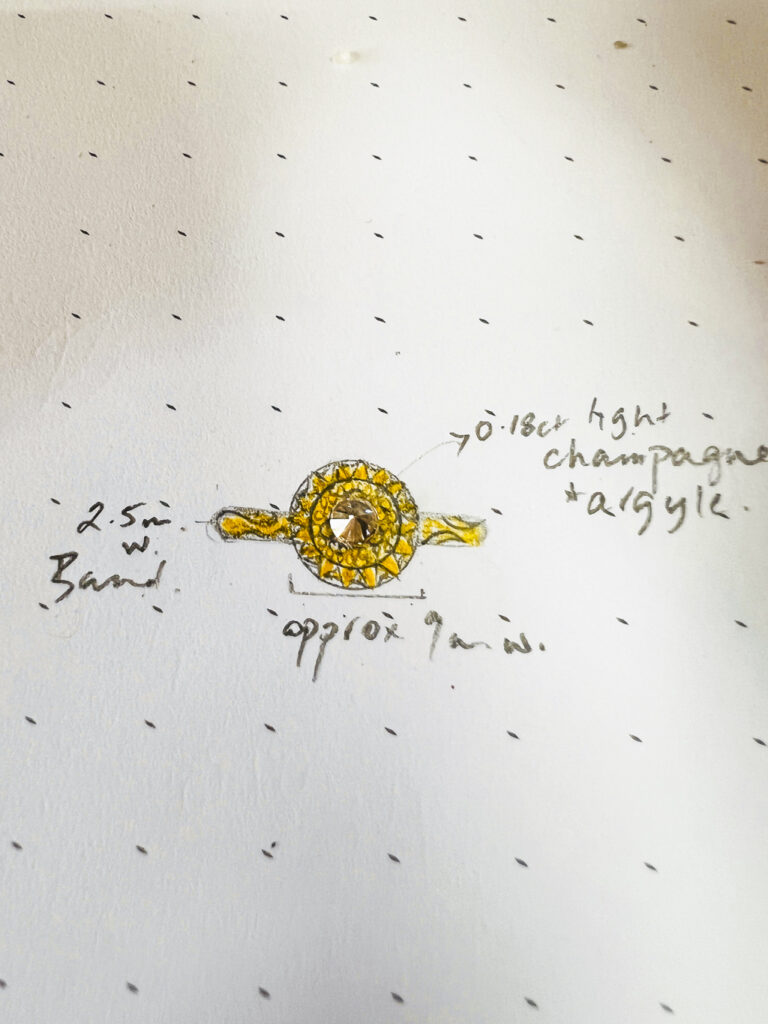 0.18ct light
champagne
*argyle.
2.5m.
w.
Band.
approx 9m w.